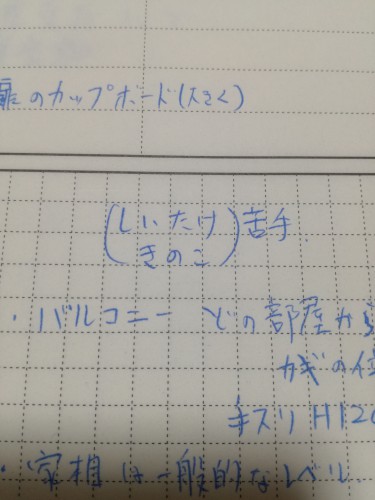 のカップボード(大きく)
(しいたけ
きのこ)苦手
・バルコニー どの部屋から
カギの位
手スリ H120
・家相は一般的なレベル